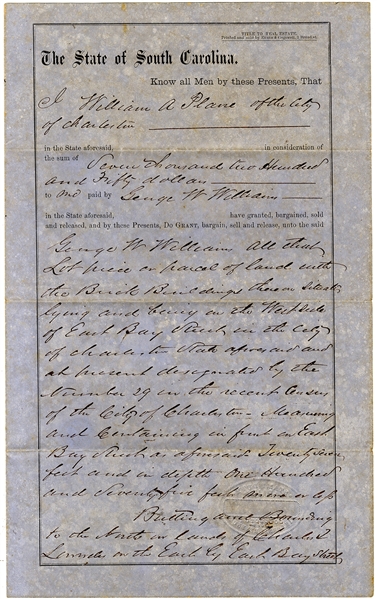 TITLE TO REAL ESTATE.
The State of South Carolina.
Know all Men by these Presents, That
I William A Plane of the City
of Charleston
in the State aforesaid, in consideration of
the sum of Seven thousand two Hundred
and Fifty dollars
to me paid by George W Williams
in the State aforesaid, have granted, bargained, sold
and released, and by these Presents, DO GRANT, bargain, sell and release, unto the said
George W Williams All that
Lot piece or parcel of land with
the Brick Buildings thereon situate
lying and being on the West side
of East Bay Street in the City
of Charleston State aforesaid and
at present designated by the
Number 29 in the recent Census
of the City of Charleston - Measuring
and Containing in front on East
Bay Street as aforesaid Twenty seven
feet and in depth One Hundred
and Seventy five feet more or less
Butting and Bounding
to the North on lands of Charles T
Lowndes on the East by East Bay Street